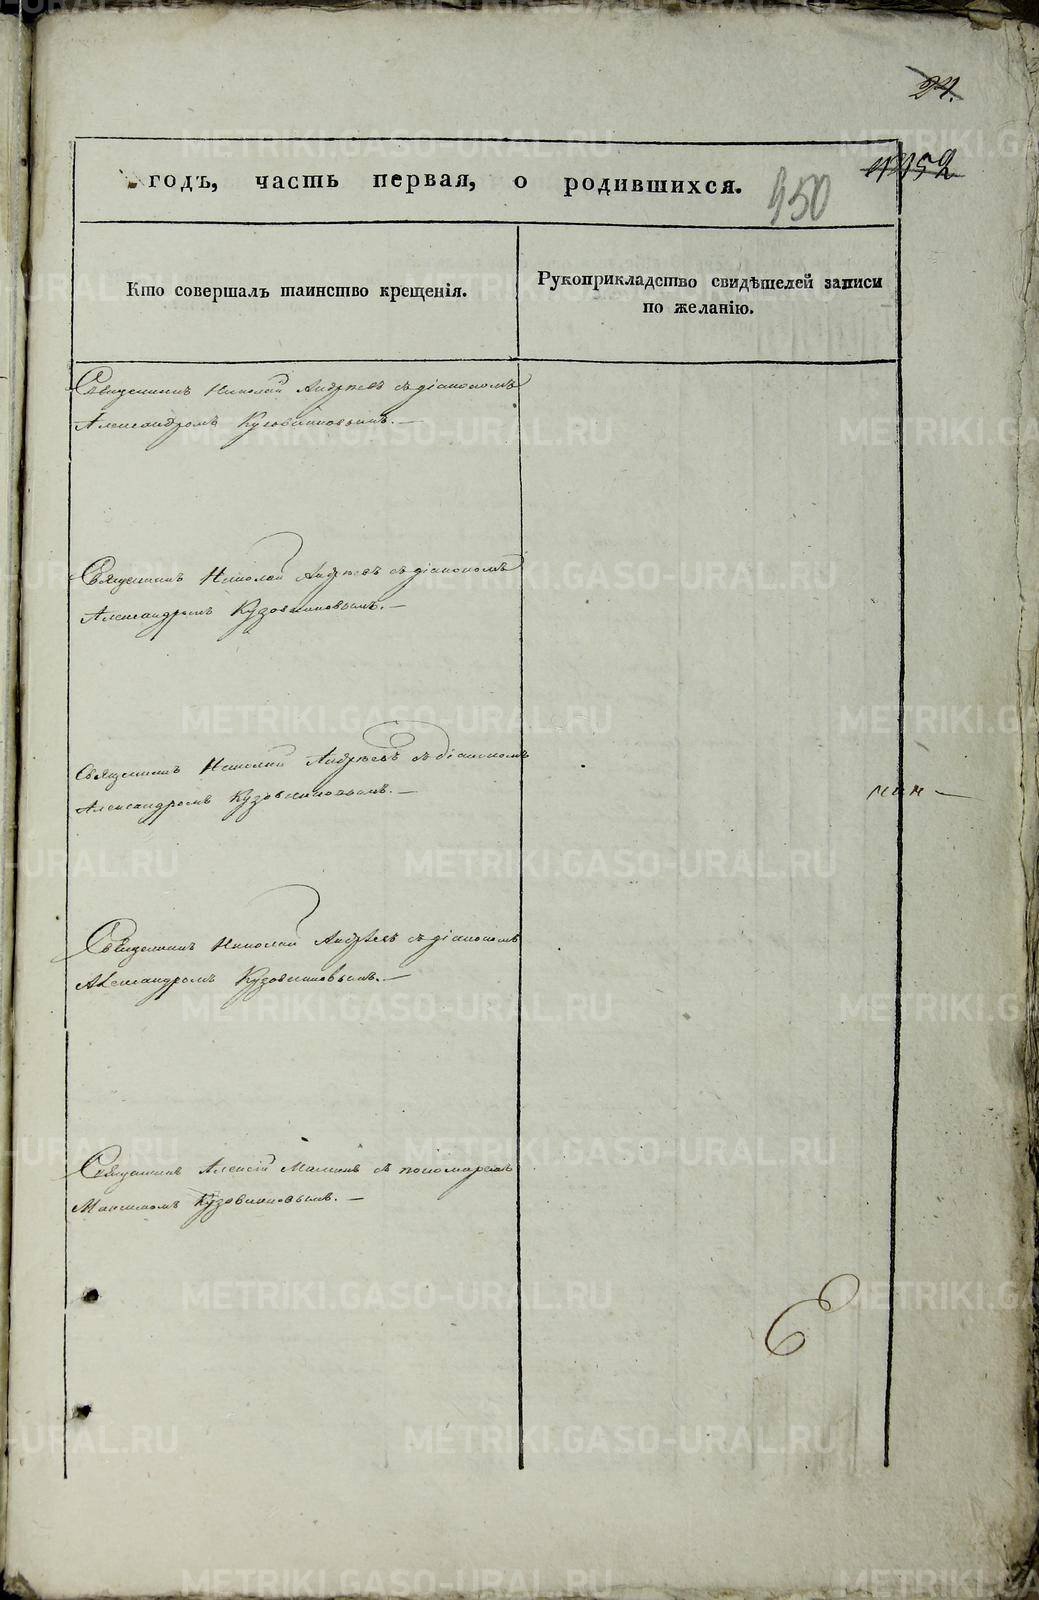 24.
годъ, часть первая, о родившихся.
450
Кто совершалъ таинство крещенія.
Рукоприкладство свидѣтелей записи
по желанію.
Священникъ Николай Андреевъ съ діакономъ
Александромъ Кузовниковымъ. —
Священникъ Николай Андреевъ съ діакономъ
Александромъ Кузовниковымъ. —
Священникъ Николай Андреевъ съ діакономъ
Александромъ Кузовниковымъ. —
Священникъ Николай Андреевъ съ діакономъ
Александромъ Кузовниковымъ. —
Священникъ Алексій Маминъ съ пономаремъ
Максимомъ Кузовниковымъ. —
METRIKI.GASO-URAL.RU